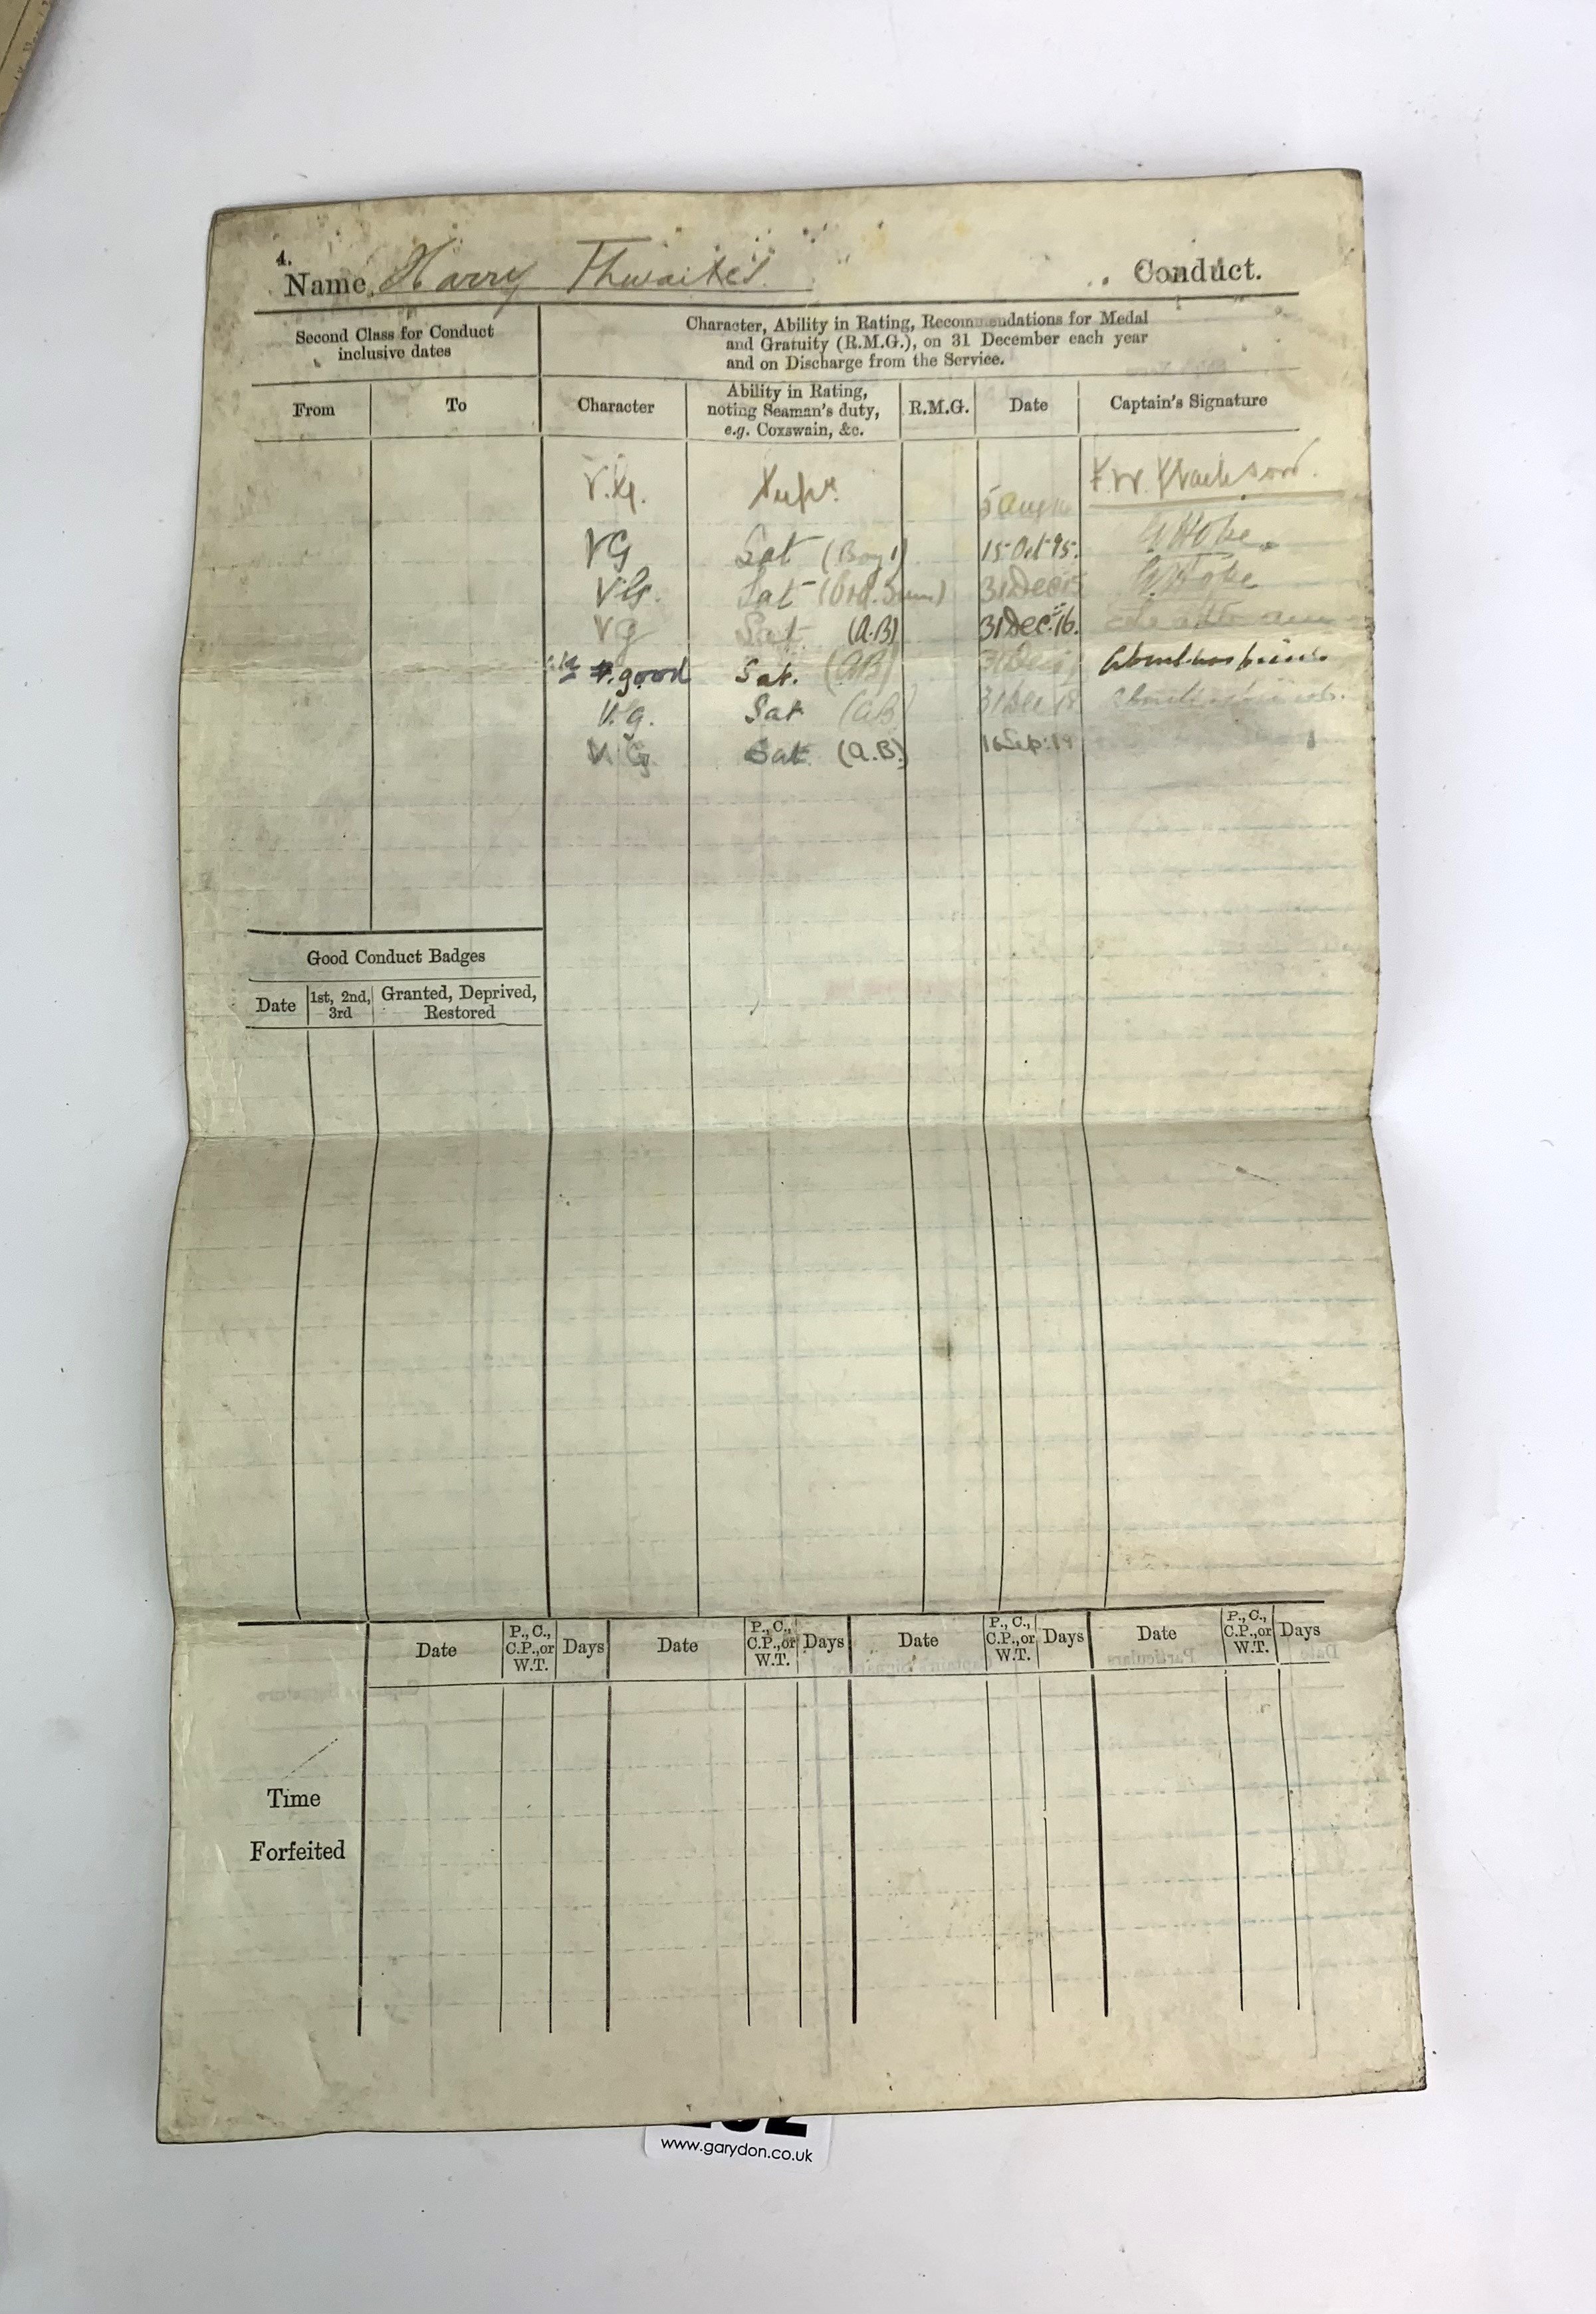 4.
Name Harry Thwaites. Conduct.
Second Class for Conduct
inclusive dates
Character, Ability in Rating, Recommendations for Medal
and Gratuity (R.M.G.), on 31 December each year
and on Discharge from the Service.
From To Character
Ability in Rating,
noting Seaman's duty,
e.g. Coxswain, &c.
R.M.G. Date Captain's Signature
V.G. Supr.
VG Sat (Boy 1) 15 Oct
V.G. Sat 31 Dec 15
VG Sat (A.B) 31 Dec. 16.
V. good Sat. (AB)
V.G. Sat (AB) 31 Dec 18
V.G. Sat (A.B.) 16 Sep. 19
Good Conduct Badges
Date 1st, 2nd, 3rd Granted, Deprived, Restored
Date P., C., C.P., or W.T. Days Date P., C., C.P., or W.T. Days Date P., C., C.P., or W.T. Days Date P., C., C.P., or W.T. Days
Time
Forfeited
www.garydon.co.uk